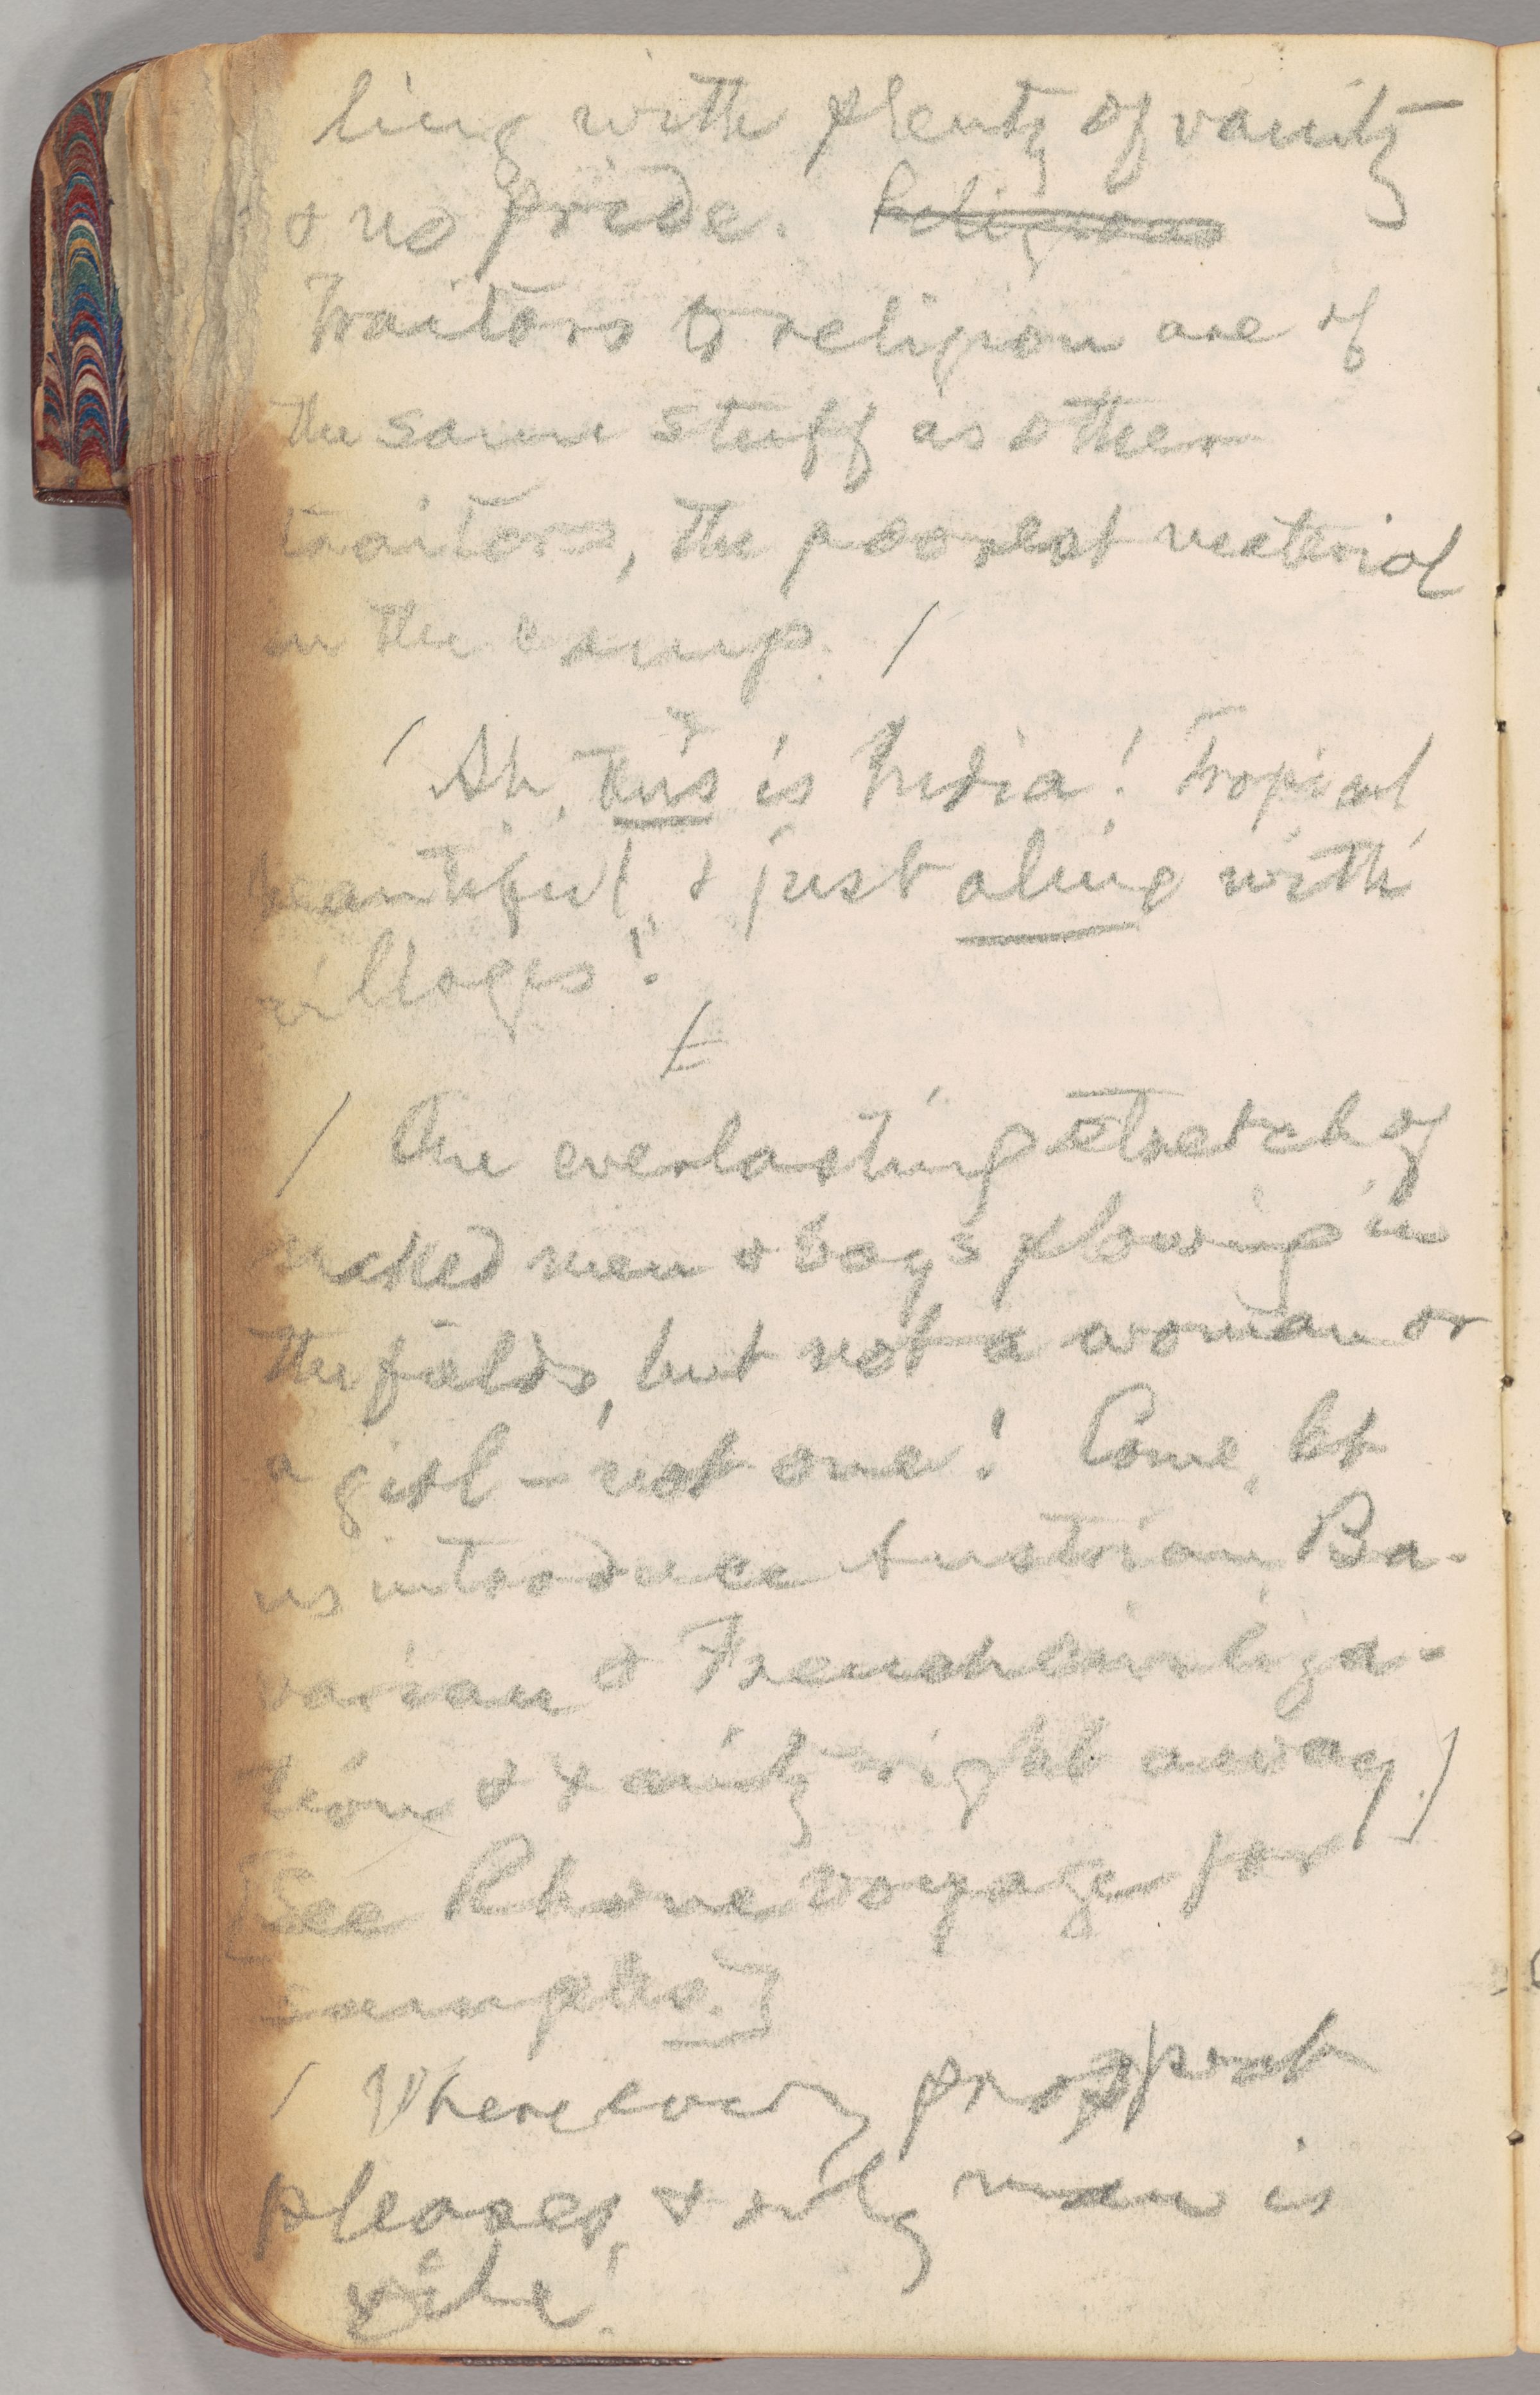 ling with plenty of vanity
& no pride. Religious
Traitors to religion are of
the same stuff as other
traitors, the poorest material
in the camp. /
/ Ah, this is India! Tropical,
beautiful, & just alive with
villages!
/ One everlasting stretch of
naked men & boys plowing in
the fields, but not a woman or
a girl — not one! Come, let
us introduce Austrian, Ba-
varian & French civiliza-
tion & Xanity right away. /
[See Rhone voyage for
samples.]
/ Where every prospect
pleases, & only man is
vile!